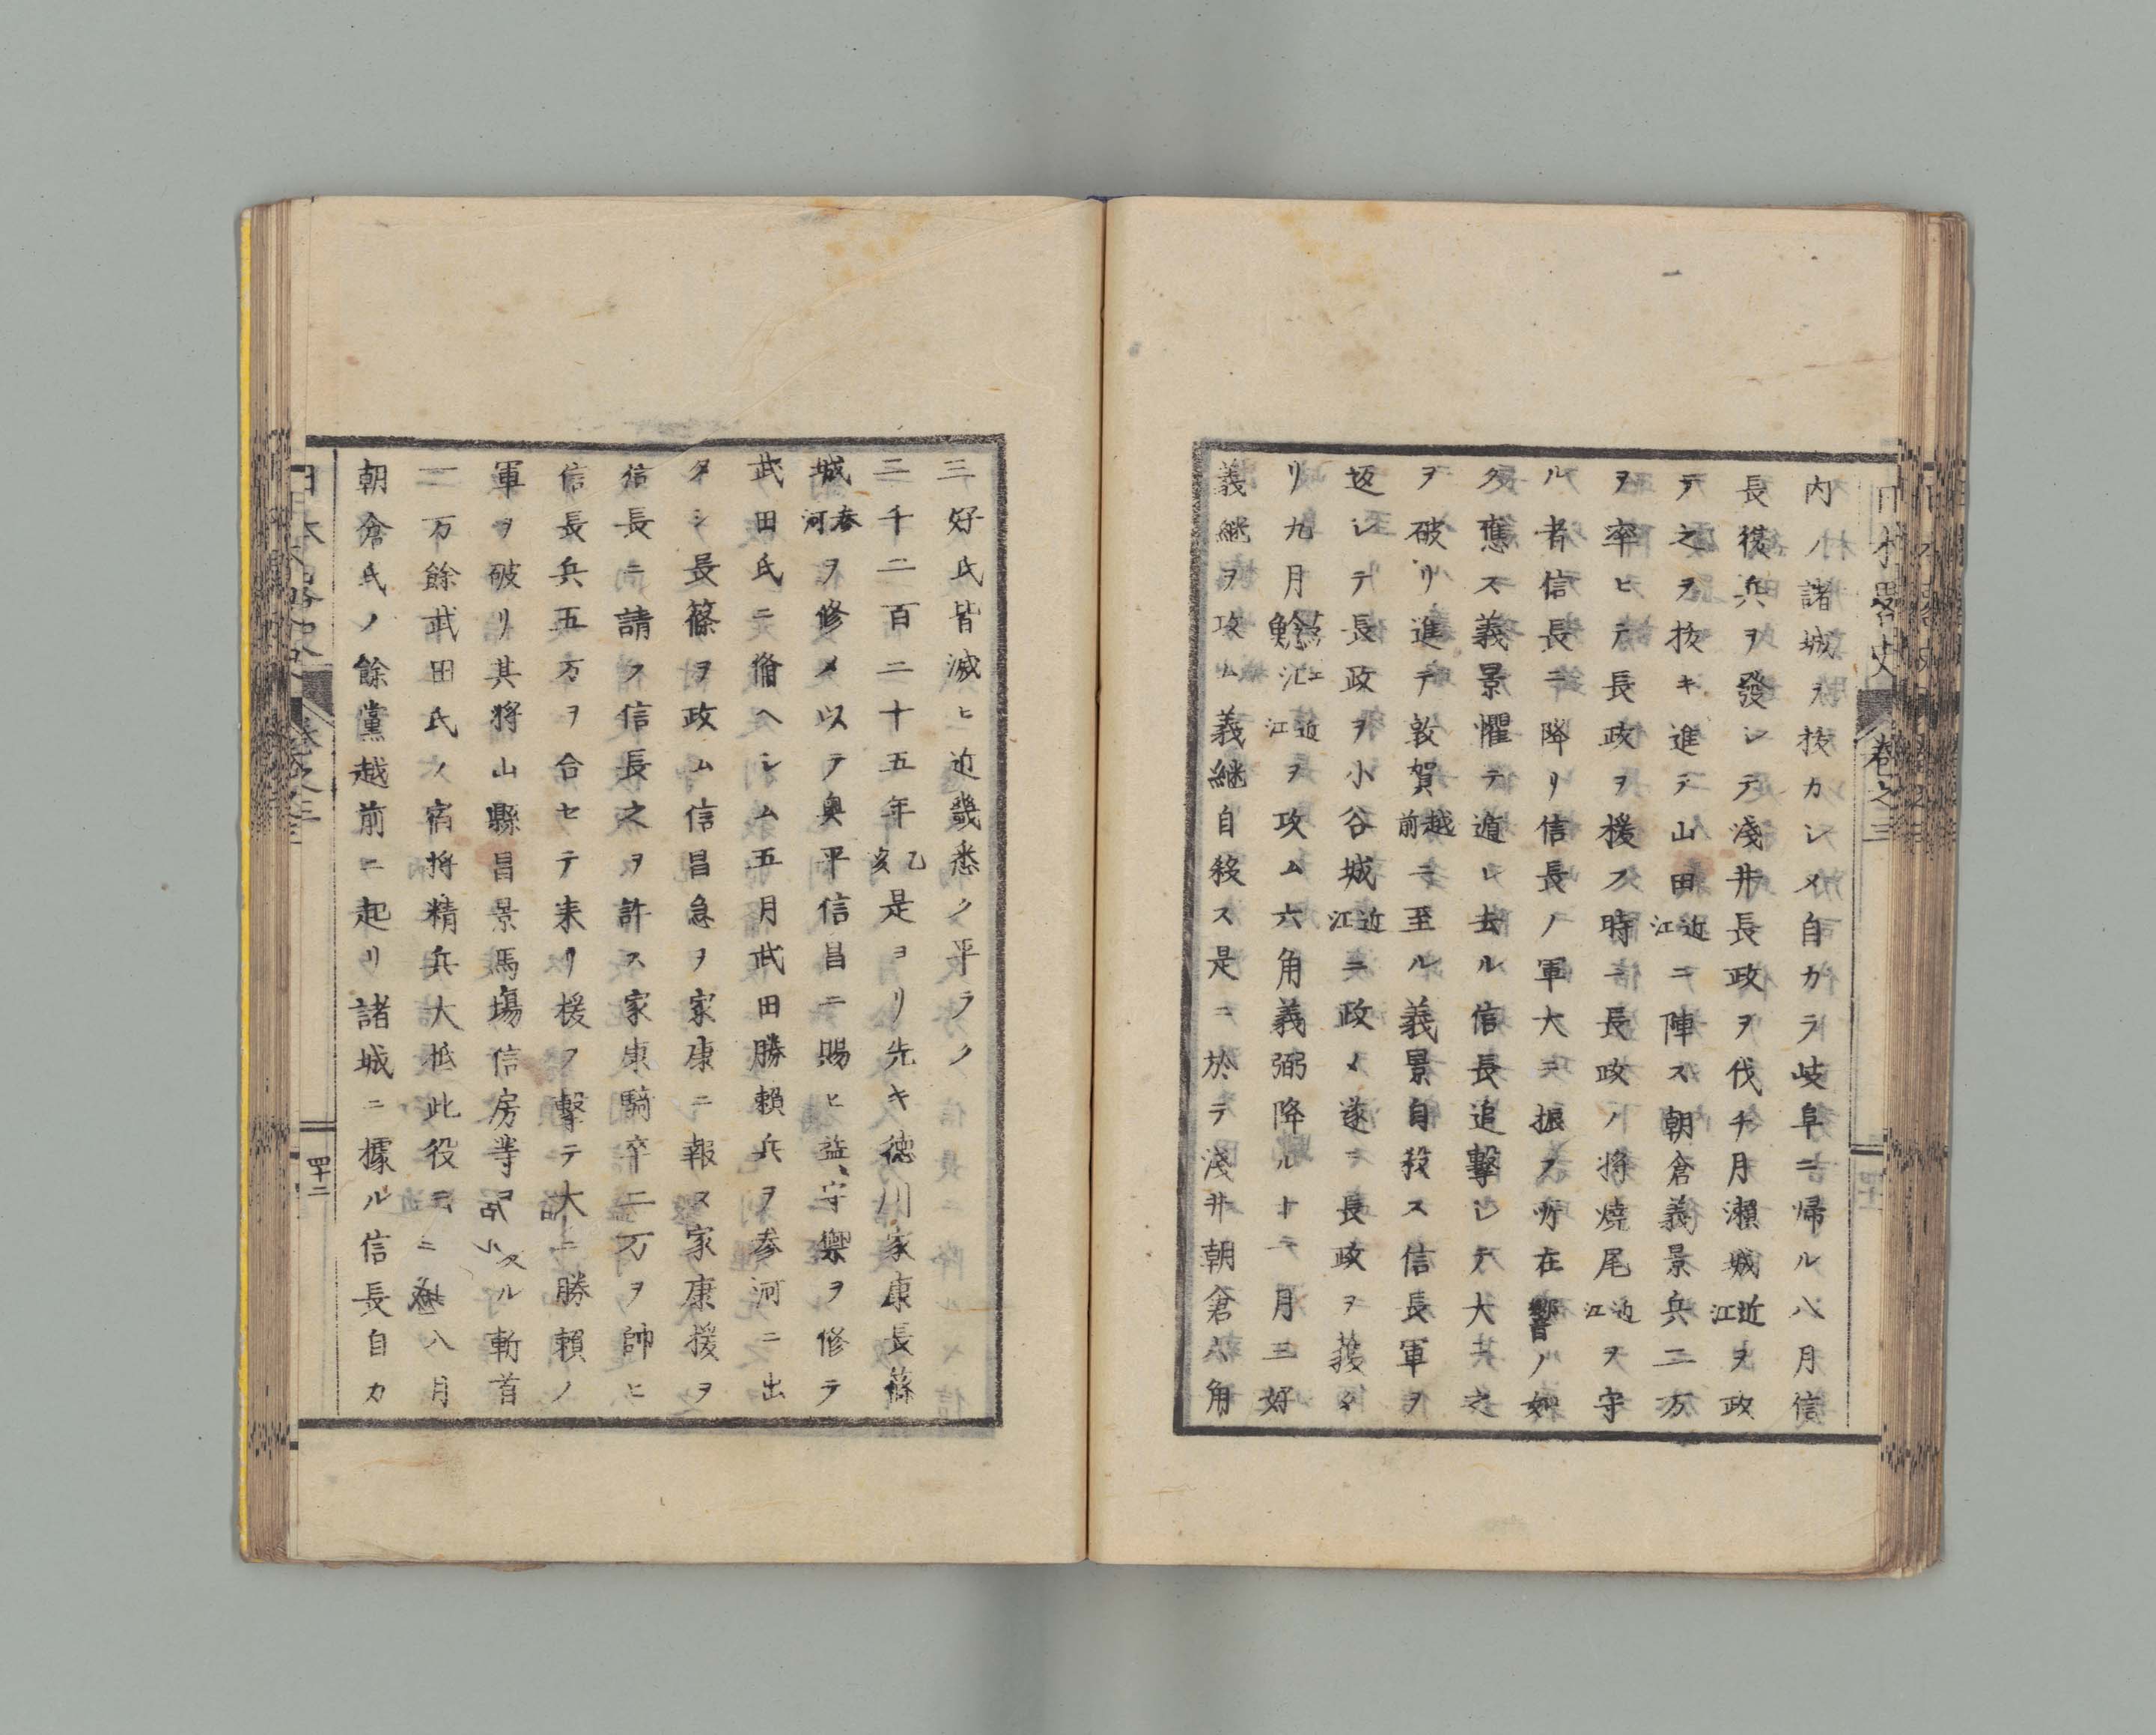 日本畧史 卷之三
内ノ諸城ヲ抜カシメ自カラ岐阜ニ帰ル八月信
長復兵ヲ發シテ淺井長政ヲ伐チ月瀬城近江ヲ攻
テ之ヲ抜キ進テ山田近江ニ陣ス朝倉義景兵二万
ヲ率ヒテ長政ヲ援フ時ニ長政ノ将燒尾近江ヲ守
ル者信長ニ降リ信長ノ軍大ニ振フ所在響ノ如
ク應ス義景懼テ遁レ去ル信長追撃シテ大ニ之
ヲ破リ進テ敦賀越前ニ至ル義景自殺ス信長軍ヲ
返シテ長政ヲ小谷城近江ニ攻メ遂ニ長政ヲ獲タ
リ九月鯰江近江ヲ攻ム六角義弼降ル十一月三好
義継ヲ攻ム義継自殺ス是ニ於テ淺井朝倉六角
三好氏皆滅ヒ近畿悉ク平ラク
二千二百二十五年乙亥是ヨリ先キ徳川家康長篠
城参河ヲ修メ以テ奥平信昌ニ賜ヒ益守禦ヲ修テ
武田氏ニ備ヘシム五月武田勝賴兵ヲ参河ニ出
タシ長篠ヲ攻ム信昌急ヲ家康ニ報ス家康援ヲ
信長ニ請フ信長之ヲ許ス家康騎卒二万ヲ帥ヒ
信長兵五万ヲ合セテ来リ援フ撃テ大ニ勝賴ノ
軍ヲ破リ其将山縣昌景馬場信房等ル斬首
一万餘武田氏ノ宿将精兵大抵此役ニ八月
朝倉氏ノ餘黨越前ニ起リ諸城ニ據ル信長自カ
日本畧史 卷之三
四十二